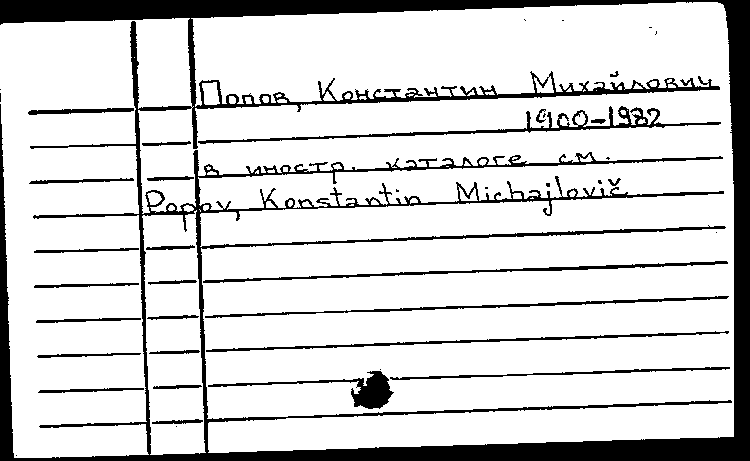 Попов, Константин Михайлович
1900-1982
в иностр. каталоге см.
Popov, Konstantin Michajlovič